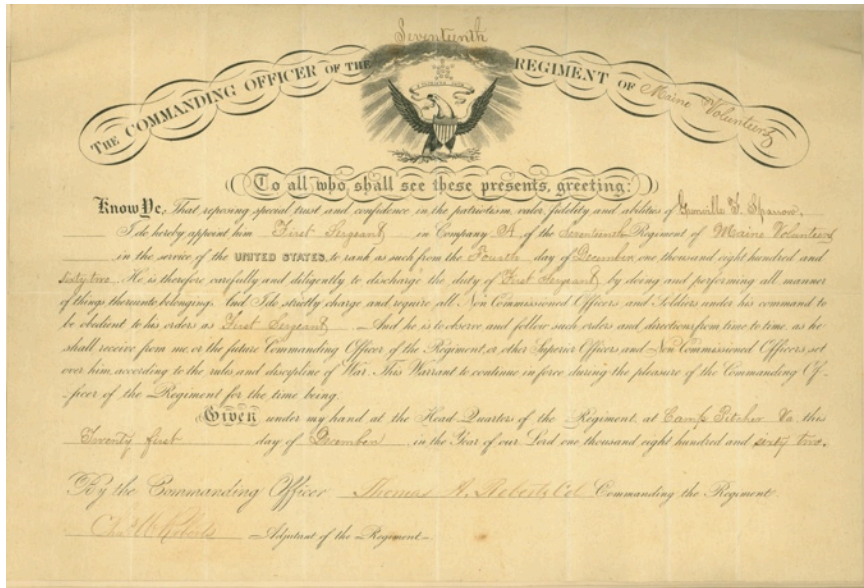 Seventeenth
THE COMMANDING OFFICER OF THE REGIMENT OF Maine Volunteers
To all who shall see these presents, greeting:
Know Ye; That reposing special trust and confidence in the patriotism, valor, fidelity and abilities of Granville F. Sparrow,
I do hereby appoint him First Sergeant in Company A, of the Seventeenth Regiment of Maine Volunteers
in the service of the UNITED STATES, to rank as such from the Fourth day of December one thousand eight hundred and
sixty two. He is therefore carefully and diligently to discharge the duty of First Sergeant by doing and performing all manner
of things thereunto belonging. And I do strictly charge and require all Non Commissioned Officers and Soldiers under his command to
be obedient to his orders as First Sergeant. And he is to observe and follow such orders and directions from time to time, as he
shall receive from me, or the future Commanding Officer of the Regiment, or other Superior Officers and Non Commissioned Officers, set
over him, according to the rules and discipline of War. This Warrant to continue in force during the pleasure of the Commanding Of-
-ficer of the Regiment for the time being.
Given under my hand at the Head Quarters of the Regiment, at Camp Pitcher Va. this
Twenty first day of December in the Year of our Lord one thousand eight hundred and sixty two.
By the Commanding Officer Thomas A. Roberts Col Commanding the Regiment.
Chas W Roberts Adjutant of the Regiment